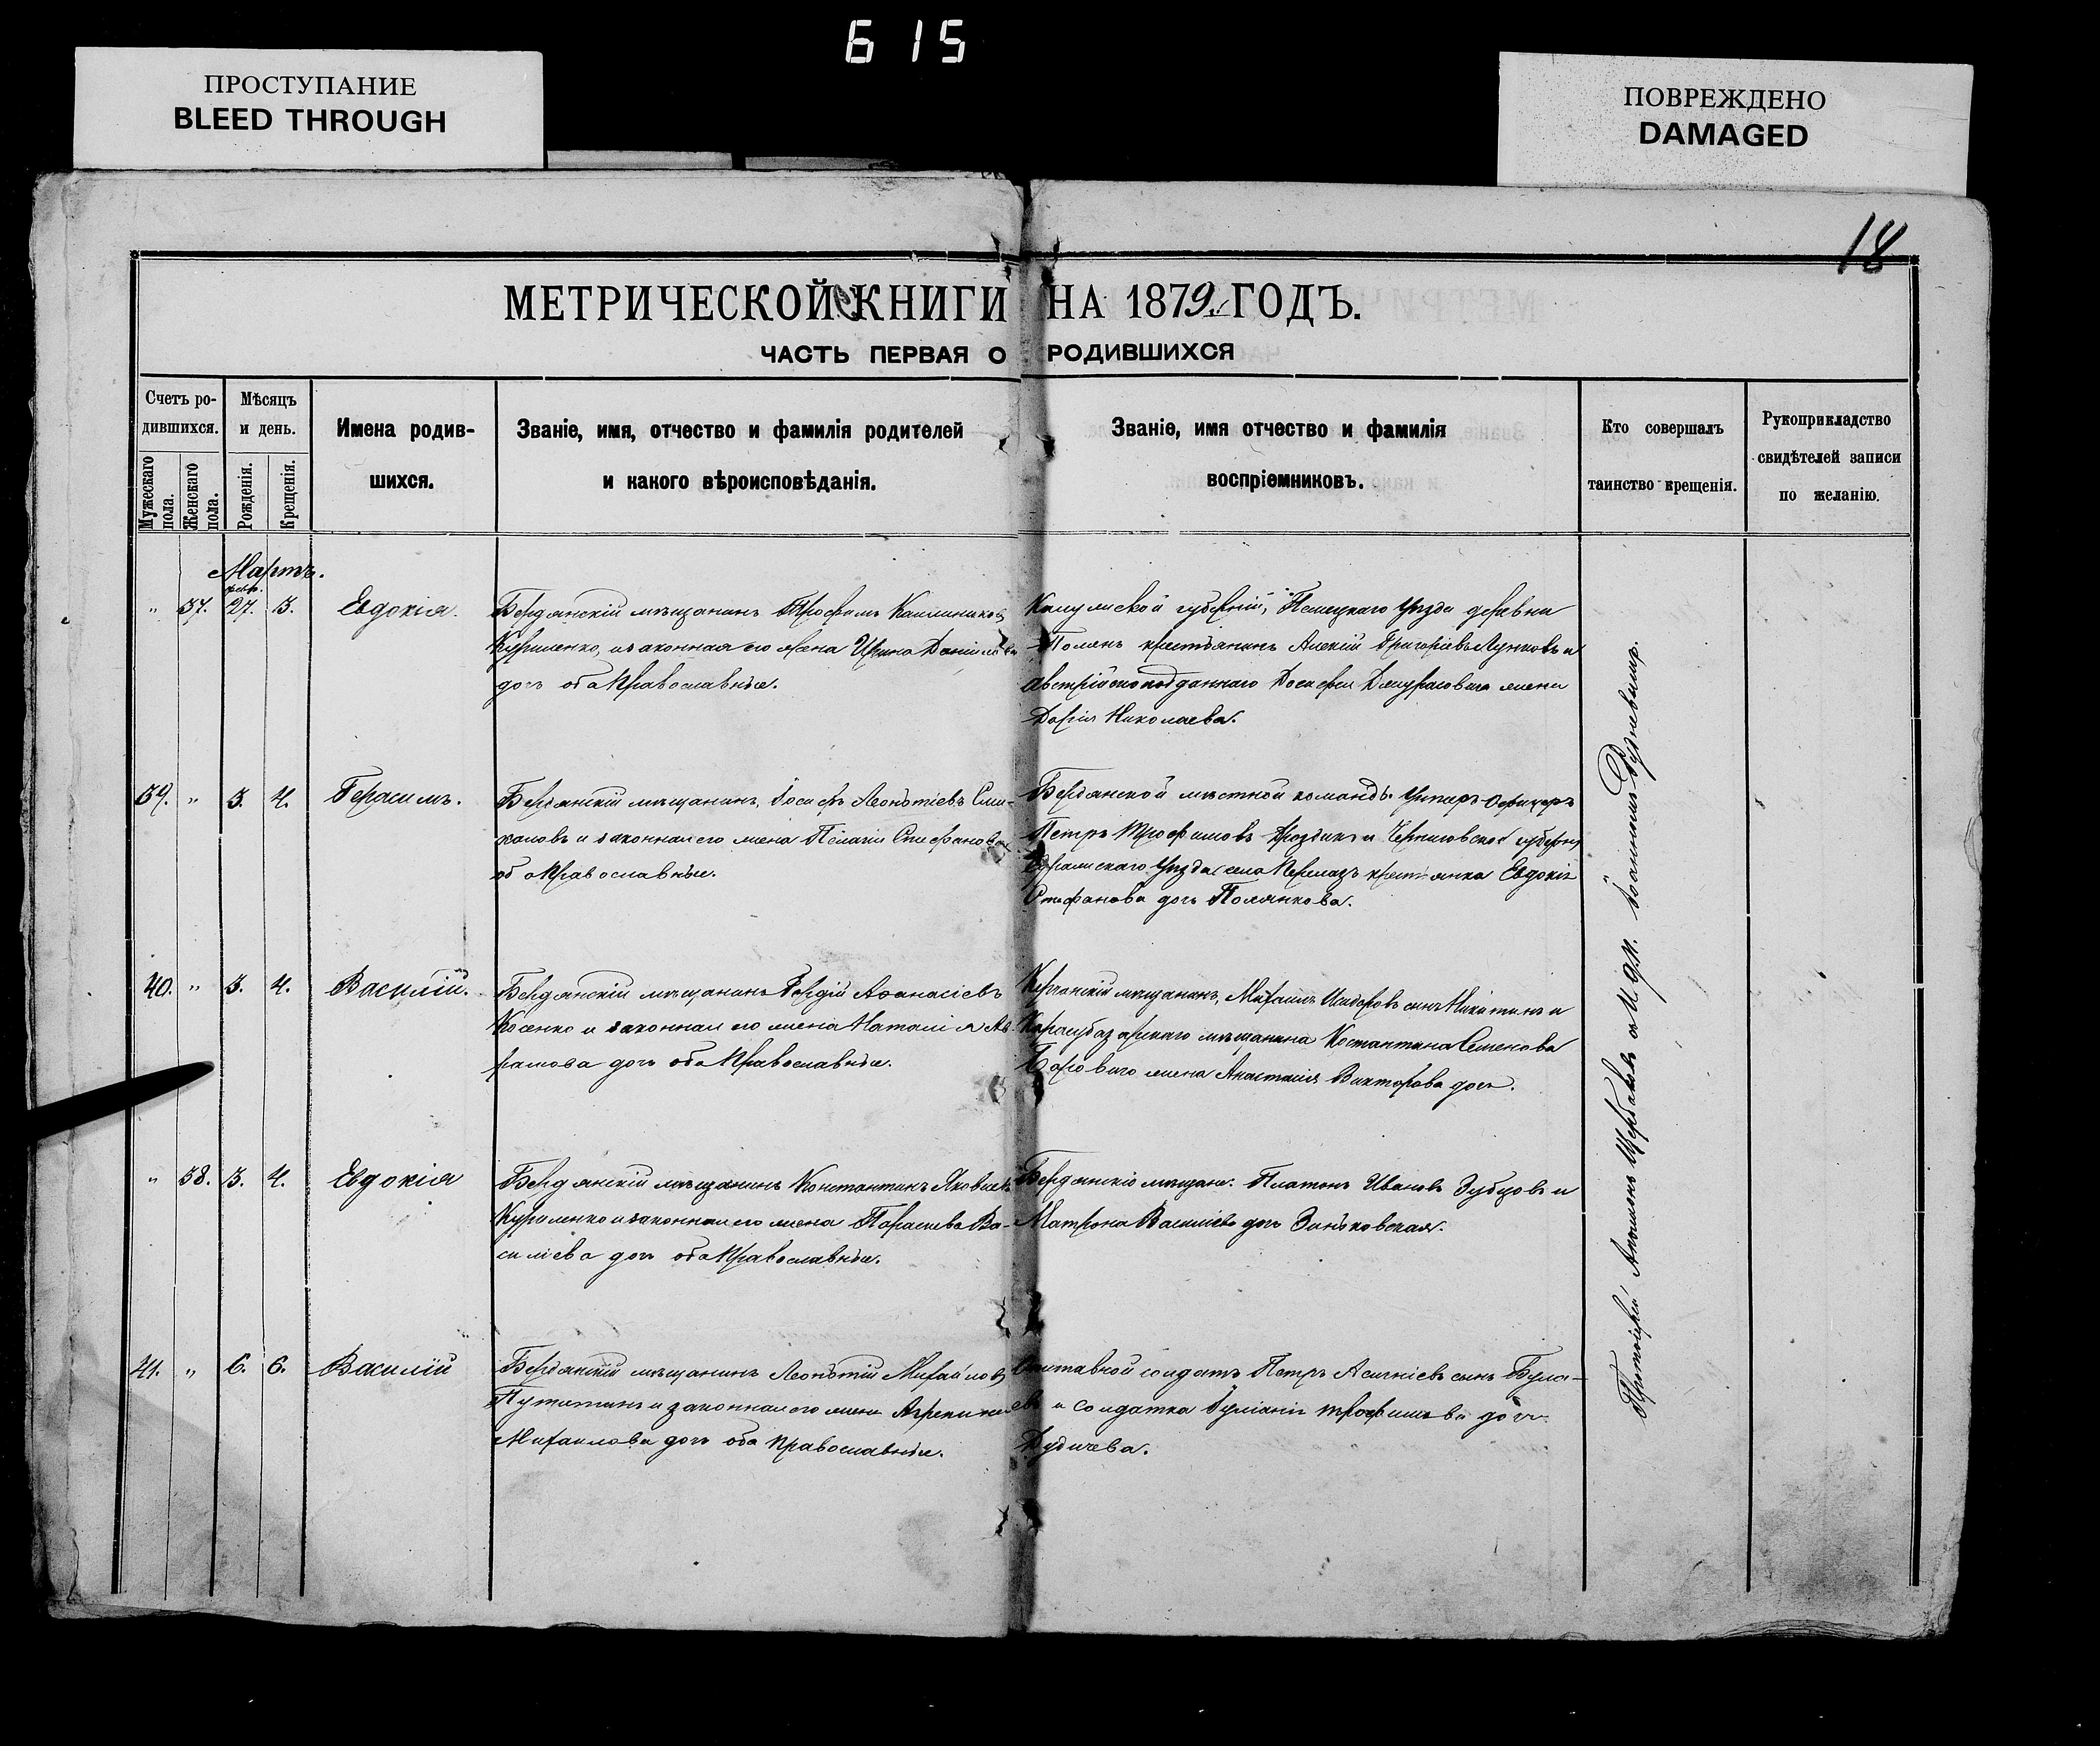 615
ПРОСТУПАНИЕ
BLEED THROUGH
ПОВРЕЖДЕНО
DAMAGED
18
МЕТРИЧЕСКОЙ КНИГИ НА 1879 ГОДЪ.
ЧАСТЬ ПЕРВАЯ О РОДИВШИХСЯ
Счетъ ро-
дившихся.
Мужескаго пола.
Женскаго пола.
Мѣсяцъ
и день.
Рожденія.
Крещенія.
Имена родив-
шихся.
Званіе, имя, отчество и фамилія родителей
и какого вѣроисповѣданія.
Званіе, имя отчество и фамилія
воспріемниковъ.
Кто совершалъ
таинство крещенія.
Рукоприкладство
свидѣтелей записи
по желанію.
Мартъ.
" 37. 27. 3. Евдокія.
Бердянскій мѣщанинъ Трофимъ Каллиниковъ
Куриленко, и законная его жена Ирина Даніилова
дочь оба Православные.
Калужской губерніи, уѣзда деревни
крестьянинъ Алексій Григоріевъ и
австрійскоподданнаго жена
Дарія Николаева.
39. " 3. 4. Герасимъ.
Бердянскій мѣщанинъ, Іосифъ Леонтіевъ
и законная его жена Пелагія Стефанова
оба Православные.
Бердянской мѣстной команды Унтеръ-Офицеръ
Петръ Трофимовъ и Черниговской губерніи
уѣзда села крестьянка Евдокія
Стефанова дочь Полянкова.
40. " 3. 4. Василій.
Бердянскій мѣщанинъ Гордій Аѳанасіевъ
Косенко и законная его жена Наталія Ав-
рамова дочь оба Православные.
Керчанскій мѣщанинъ, Михаилъ сынъ Никитинъ и
Карасубазарскаго мѣщанина Костантина Семенова
жена Анастасія Викторова дочь.
" 38. 3. 4. Евдокія
Бердянскій мѣщанинъ Константинъ Яковлевъ
Куриленко и законная его жена Параскева Ва-
силіева дочь оба Православные.
Бердянскіе мѣщане: Платонъ Ивановъ Зубцовъ и
Матрона Василіева дочь Зинковская.
41. " 6. 6. Василій
Бердянскій мѣщанинъ Леонтій Михайловъ
и законная его жена Агрепина
Михаилова дочь оба Православные.
Отставной солдатъ Петръ сынъ Була-
евъ и солдатка Іуліанія Трофимова дочь
Дубичева.
Протоіерей Щербаковъ съ Іоанномъ